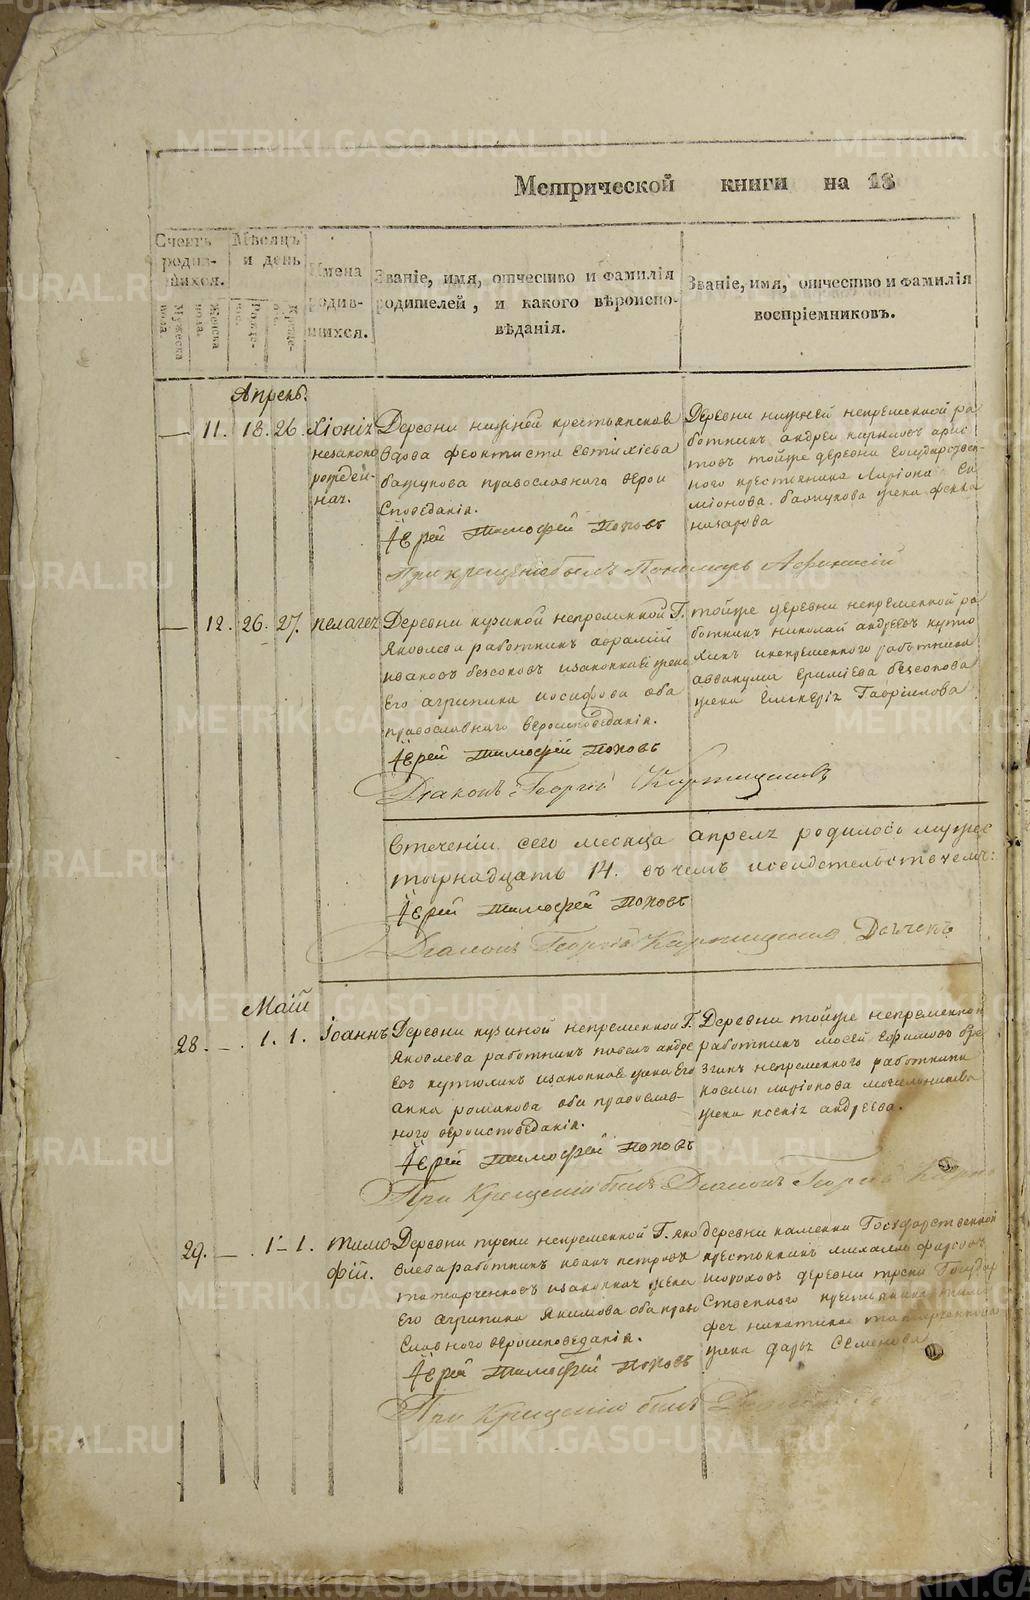 Метрической книги на 18
Счетъ родившихся.
Мужеска пола.
Женска пола.
Мѣсяцъ и день
Рожде-
Креще-
Имена родившихся.
Званіе, имя, отчество и фамилія
родителей, и какого вѣроиспо-
вѣданія.
Званіе, имя, отчество и фамилія
воспріемниковъ.
Апрель.
— 11. 18. 26.
Хіонія
незаконо
рожден-
ная.
Деревни нижней крестьянская
вдова феоктиста Евтихіева
православнаго верои
споведанія.
Іерей Тимофей Поповъ
При крещеніи былъ Пономарь Афанасій
Деревни нижней непременной ра
ботникъ андрей кириловъ
товъ тойже деревни Государствен-
наго крестьянина Лариона Си
міонова жена фекла
назарова
— 12. 26. 27.
пелагея
Деревни кузиной непременной Г.
Яковлева работникъ аврамій
ивановъ безсоновъ изаконная жена
Его агрипина иосифова оба
православнаго вероисповеданія.
Іерей Тимофей Поповъ
Діаконъ Георгій
тойже деревни непременной ра
ботникъ николай андреевъ кутю
хинъ инепременного работника
аввакума Еримеева безсонова
жена Гавриилова
Втеченіи сего месяца апреля родилось мужес
тырнадцать 14. въчемъ исвидетельствуемъ:
Іерей Тимофей Поповъ
Діаконъ Георгій
Маій
28. — 1. 1.
Іоаннъ
Деревни кузиной непременной Г.
Яковлева работникъ павелъ андре
евъ кутюхинъ изаконная жена Его
анна романова оба православ-
наго вероисповеданія.
Іерей Тимофей Поповъ
При Крещеніи былъ Діаконъ Георгій
Деревни тойже непременной
работникъ мосей Ефимовъ бре
згинъ непременного работника
козмы ларіонова
жена ксенія андреева.
29. — 1 — 1.
тимо
фій.
Деревни треки непременной Г. яко
влева работникъ иванъ петровъ
татарченковъ изаконная жена
Его агрипина Якимова оба право
славного вероисповеданія.
Іерей Тимофей Поповъ
При Крещеніи былъ Діаконъ
деревни каменки Государственной
крестьянинъ михайло
деревни треки Государ
ственного крестьянина тимо
фея
жена дарья Семенова
METRIKI.GASO-URAL.RU